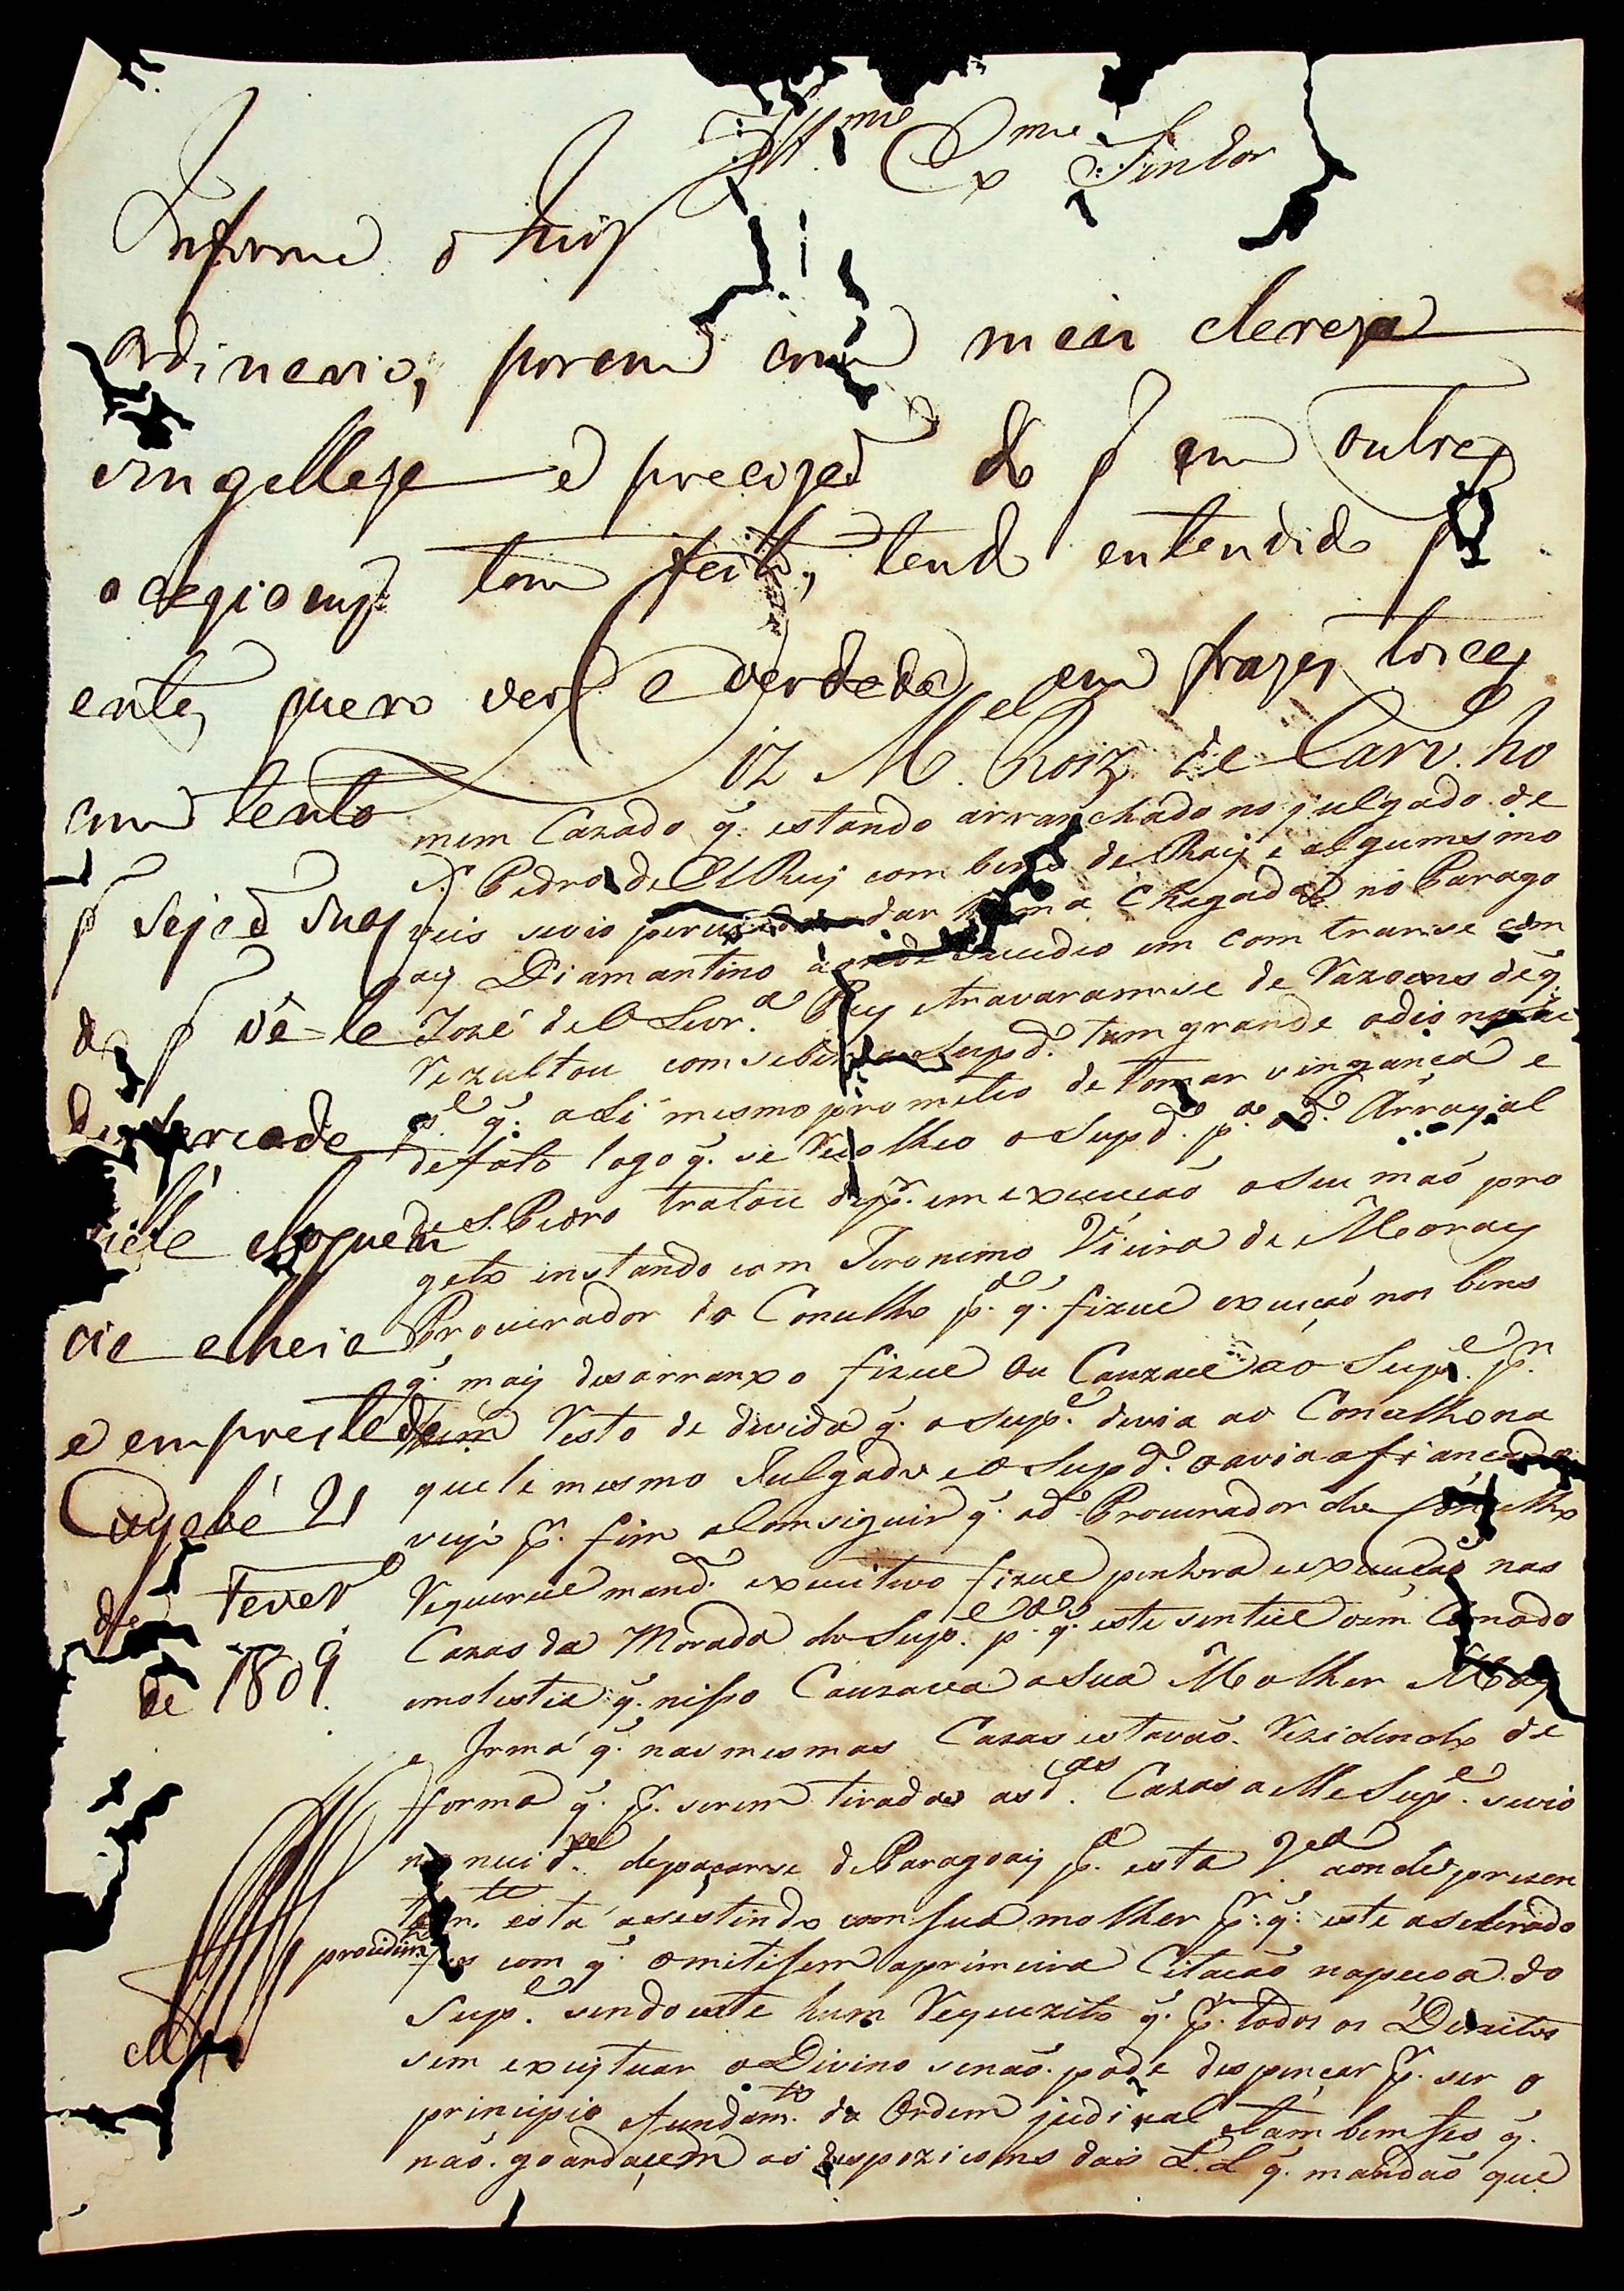 Ill.mo Ex.mo Senhor
Informe o Juis
ordinario, porem com mais clareza
singelleza e precizaõ do q em outras
ocazioens tem feito, tendo entendido q
antes quero ver a verdade em frazes toscas
com tanto
q sejaõ suas
do q vê-la
disfarçada
eloquen
cia alheia
e emprestada
Cuyabá 21
de Fever.o
de 1809.
Diz M.el Roiz de Carv.ho
mem Cazado q. estando arranchado no julgado de
S. Pedro de El Rey com bens de Raiz e algumes mo
veis dar huma Chegada no Parago
ay Diamantino aonde sucedeo em com trarse com
Jozé de Olivr.a Rey etravaramse de Razoens de q.
Rezultou comseber o Sup.do tam grande odio
q. a Si mesmo prometeo de tomar vingança e
defato logo q. se Recolheo o Sup.do p.a o d.o Arrayal
de S. Pedro tratou de pr. em execucaõ o Seu maõ pro
geto instando com Jeronimo Vieira de Moraes
Procurador do Conselho p.a q. fizece execuçaõ nos bens
q. mais desarranxo fizece ou Cauzace ao Sup.e pr.
hum Resto de divida q. o Sup.e devia ao Conselho na
quele mesmo Julgado e o Sup.do o avia afiançado
veyo pr. fim a Comsiguir q. o d.o Procurador do Conselho
Requerece mand.o executivo fizece penhora e execucaõ nas
Cazas da Morada do Sup.e p.a q. este sentice o emComodo
emolestia q. nisso Cauzava a Sua Molher May
e Irmã q. nas mesmas Cazas estavaõ Rezidindo de
forma q. pr. serem tiradas as d.as Cazas a elle Sup.e sevio
na necid.e depaçarse de Paragoay p.a esta V.a aonde prezen
tem.te está asestindo com sua molher pr. q. este aselerado
providim.to com q. omitisem aprimeira Citacaõ napecoa do
Sup.e sendo este hum Requezito q. pr. todos os Direitos
sem exceptuar o Divino senaõ pode despençar pr. ser o
principio efundam.to da Ordem judical e tambem fes q.
naõ goardacem as despozicoens das L.L q. mandaõ que